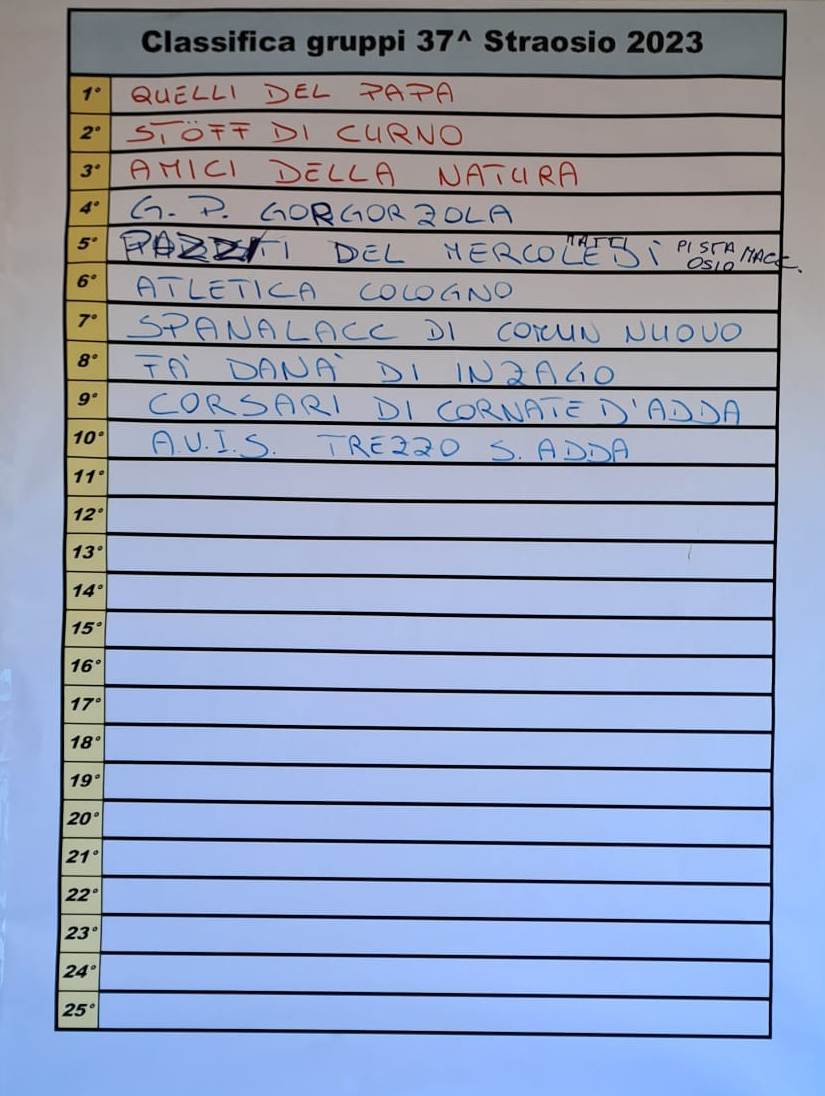 Classifica gruppi 37^ Straosio 2023
1° QUELLI DEL PAPA
2° STÖFF DI CURNO
3° AMICI DELLA NATURA
4° G. P. GORGORZOLA
5° DEL MERCOLEDÌ MATTI PISTA OSIO MACC.
6° ATLETICA COLOGNO
7° SPANALACC DI COMUN NUOVO
8° FÀ DANÀ DI INZAGO
9° CORSARI DI CORNATE D'ADDA
10° A.V.I.S. TREZZO S. ADDA
11°
12°
13°
14°
15°
16°
17°
18°
19°
20°
21°
22°
23°
24°
25°